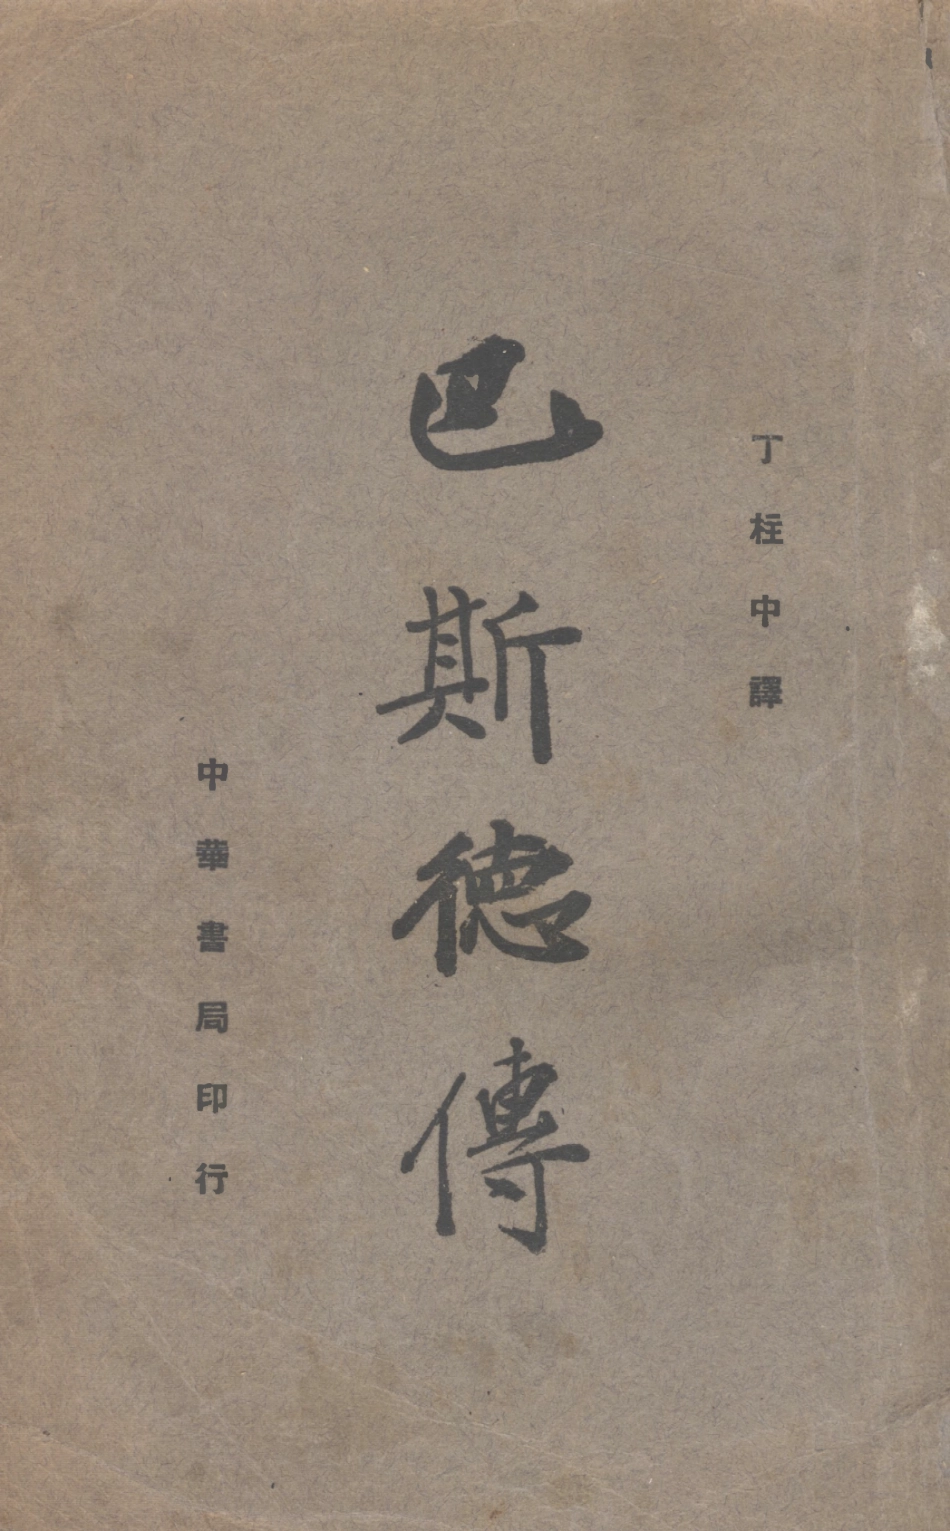 丁柱中譯
巴斯德傳
中華書局印行